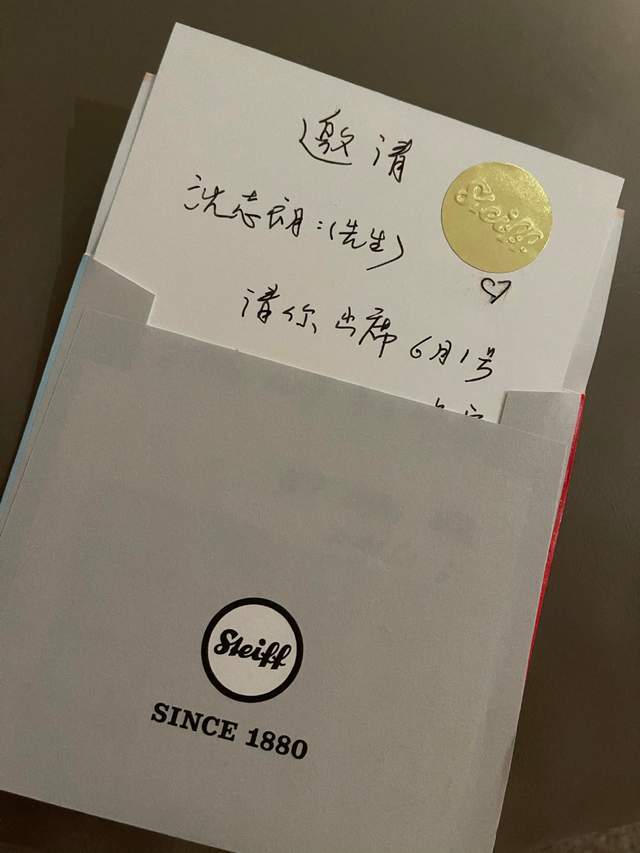 邀请
Steiff
冼志朗:(先生)
请你出席6月1号
Steiff
SINCE 1880